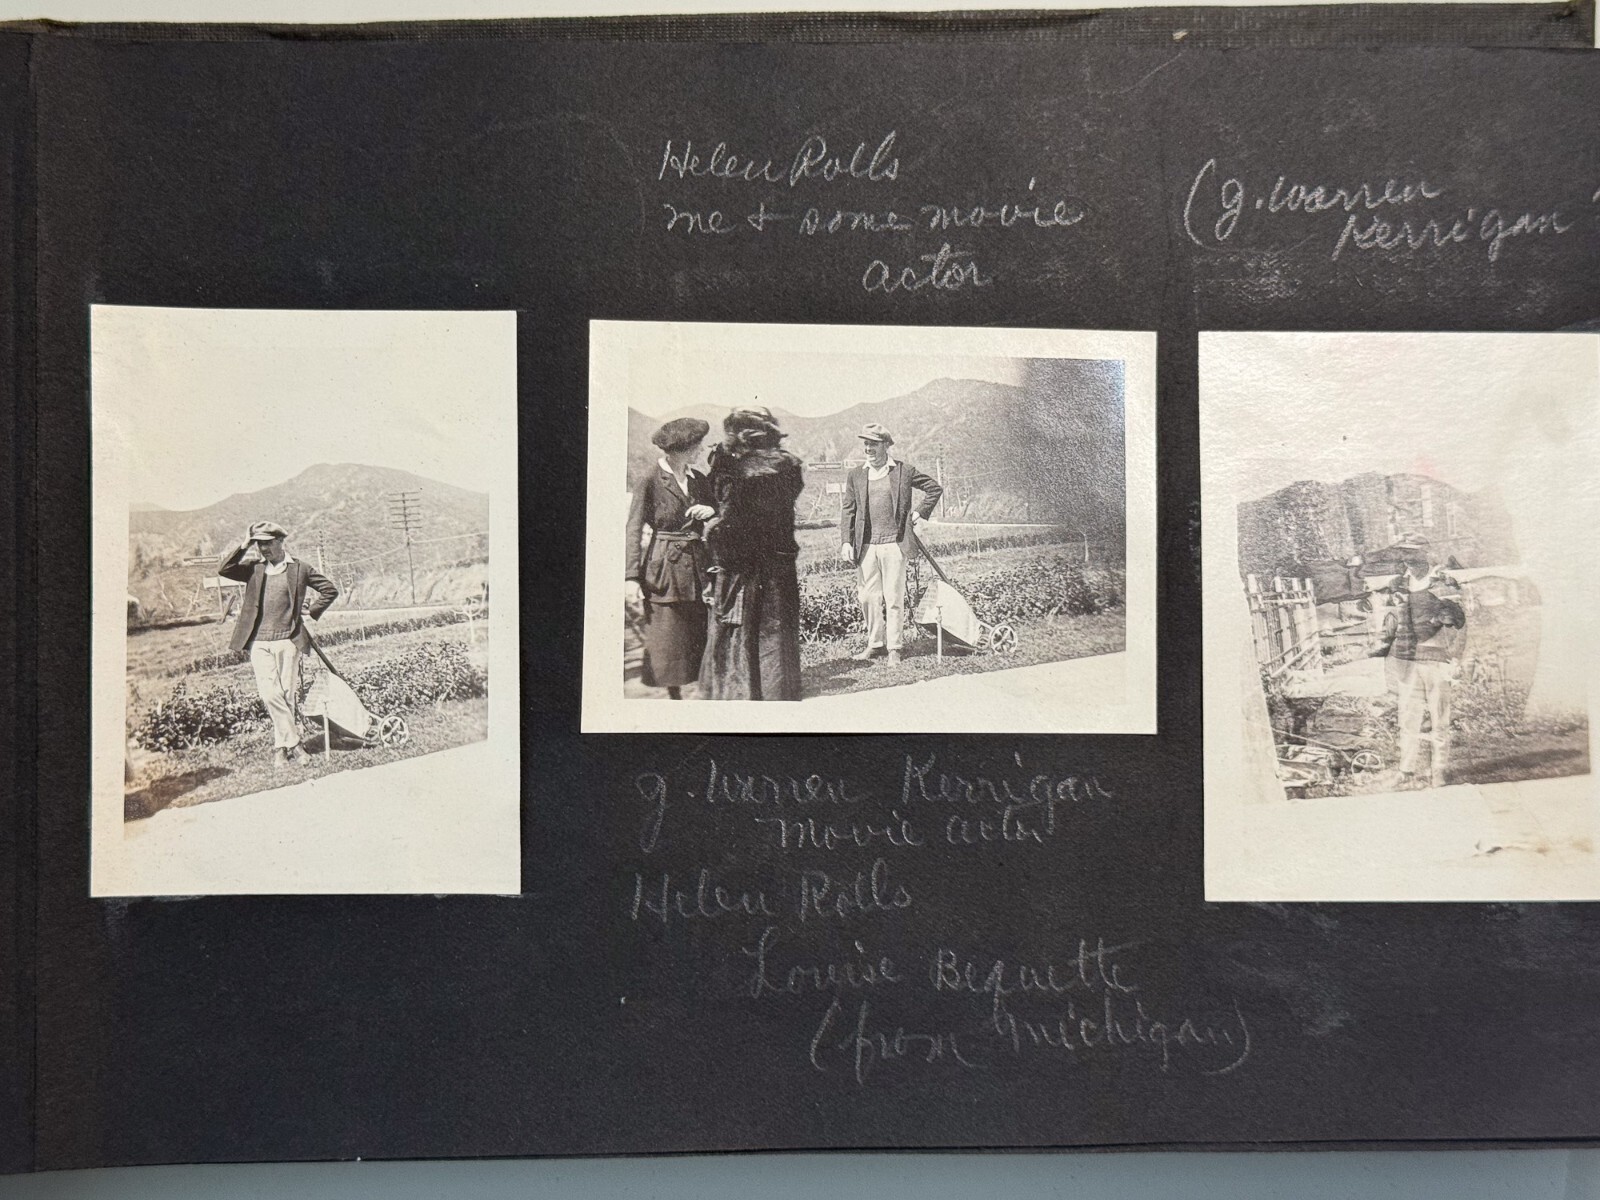 Helen Rolls
me & some movie
actor
(g. Warren
Kerrigan
g. Warren Kerrigan
movie actor
Helen Rolls
Louise Bequette
(from Michigan)